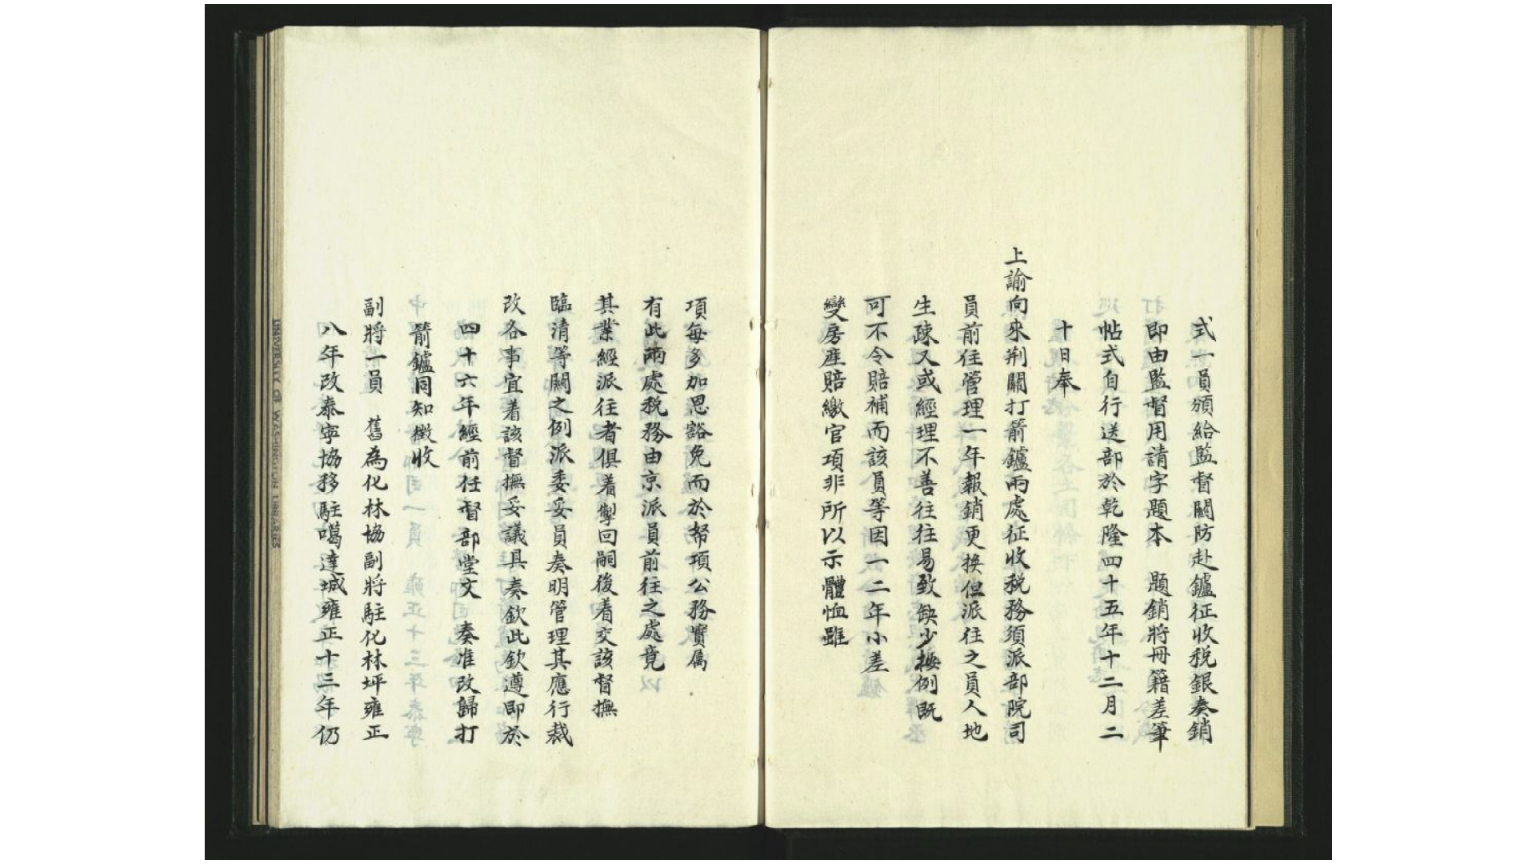 式一員頒給監督關防赴鑪征收稅銀奏銷
即由監督用請字題本　題銷將冊籍差筆
帖式自行送部於乾隆四十五年十二月二
十日奉
上諭向來荆關打箭鑪兩處征收稅務須派部院司
員前往管理一年報銷更換但派往之員人地
生疎又或經理不善往往易致缺少換例旣
可不令賠補而該員等因一二年小差
變房產賠繳官項非所以示體恤雖
項每多加恩豁免而於帑項公務實屬
有此兩處稅務由京派員前往之處竟
其業經派往者俱着掣回嗣後着交該督撫
臨清等關之例派委妥員奏明管理其應行裁
改各事宜着該督撫妥議具奏欽此欽遵即於
四十六年經前任督部堂文　奏准改歸打
箭鑪同知徵收
副將一員　舊為化林協副將駐化林坪雍正
八年改泰寧協移駐噶達城雍正十三年仍